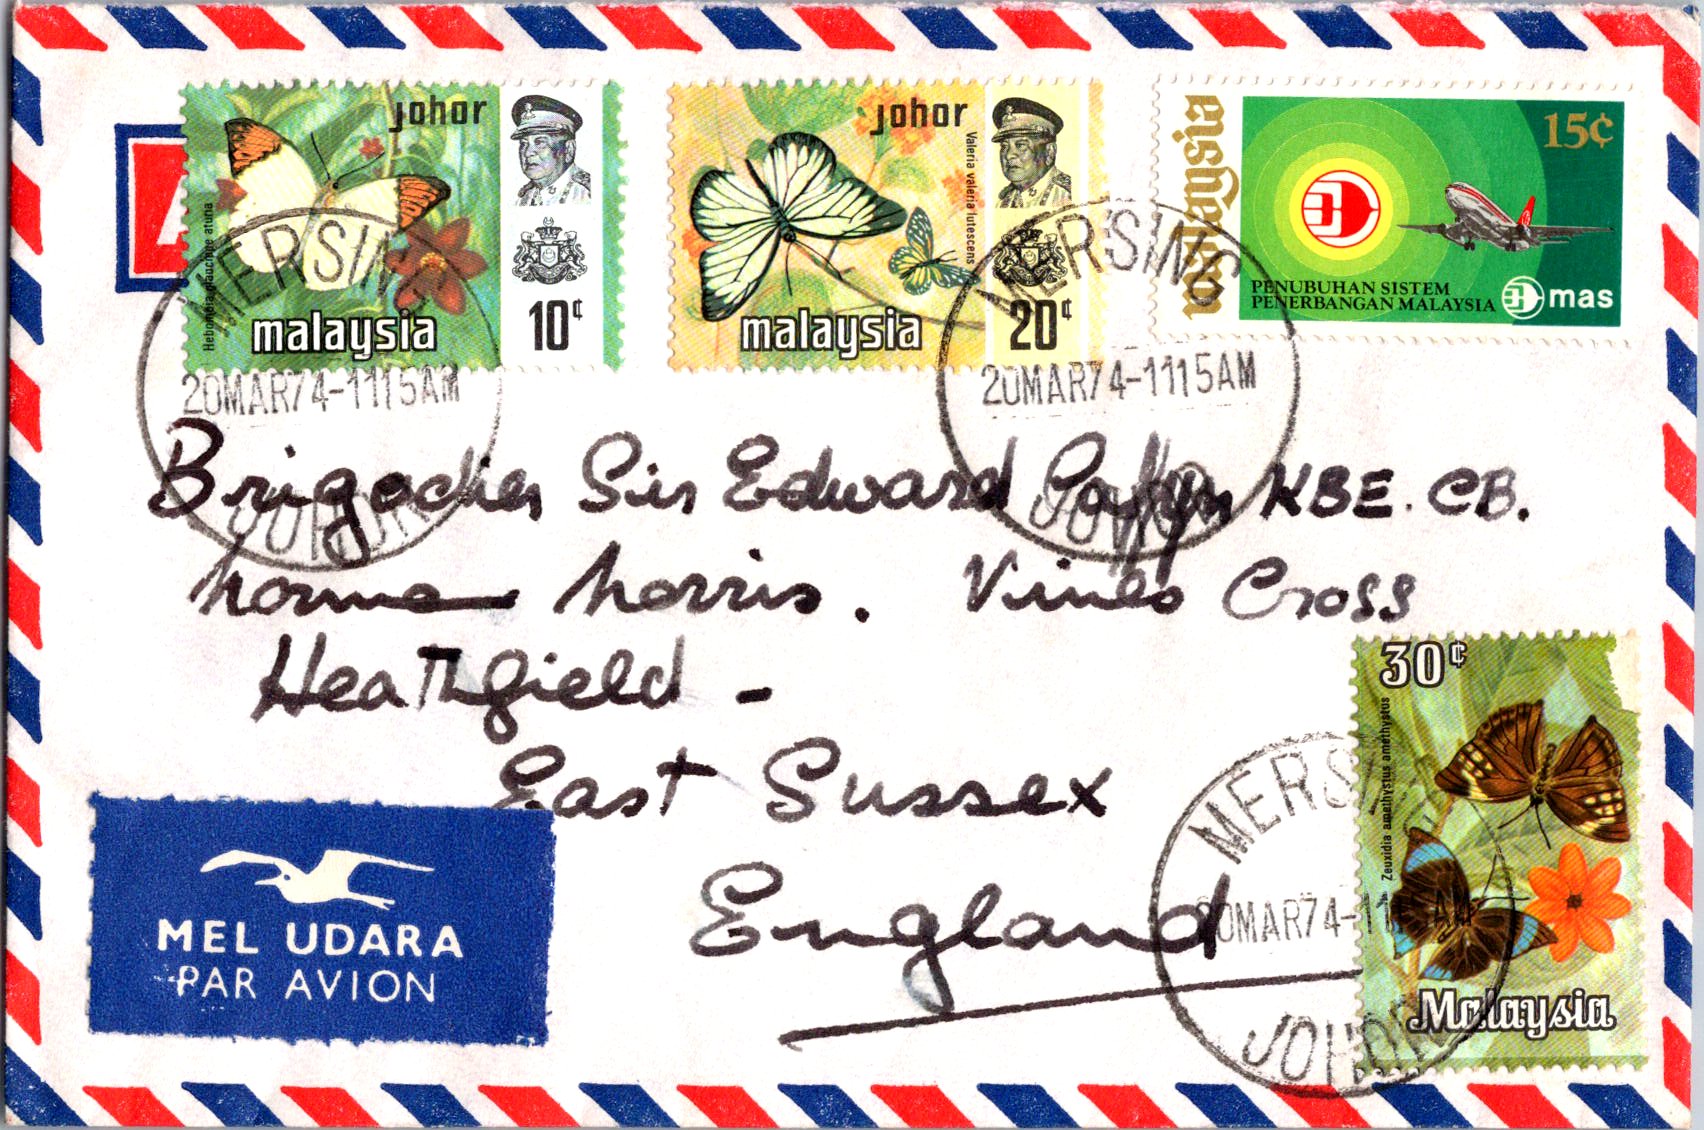 A
johor
Hebomoia glaucippe aturia
malaysia
10¢
johor
Valeria valeria lutescens
malaysia
20¢
malaysia
15¢
PENUBUHAN SISTEM
PENERBANGAN MALAYSIA
mas
MERSING
20MAR74-1115AM
JOHOR
MERSING
20MAR74-1115AM
JOHOR
Brigadier Sir Edward KBE. CB.
Norris. Vines Cross
Heathfield -
East Sussex
England
30¢
Zeuxidia amethystus amethystus
Malaysia
MERS
20MAR74-11 AM
JOHOR
MEL UDARA
PAR AVION